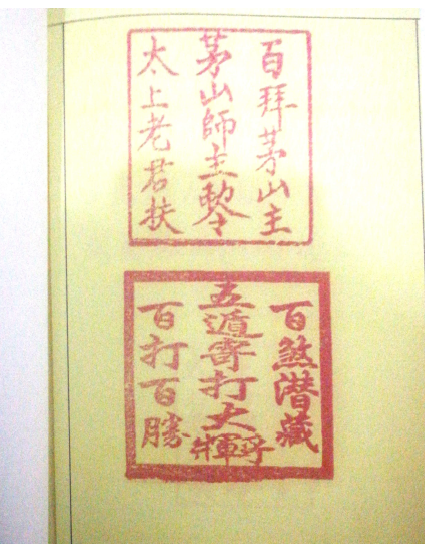 百拜茅山主
茅山師主
太上老君扶
百煞潜藏
五遁寄打大
百打百勝